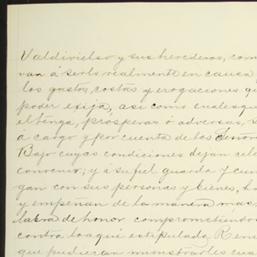 Valdivielso y sus herederos, com
van á serlo, realmente en causa
los gastos, costas y erogaciones qu
poder exija, así como cualesqu
el tenga, prosperas ó adversas, s
á cargo y por cuenta de los Señor
Bajo cuyas condiciones dejan cele
convenio; y á su fiel guarda y cum
gan con sus personas y bienes, ha
y empeñan de la manera mas
labra de honor comprometiéndo
contra lo aquí estipulado. Renu
que pudieran ministrarles cua